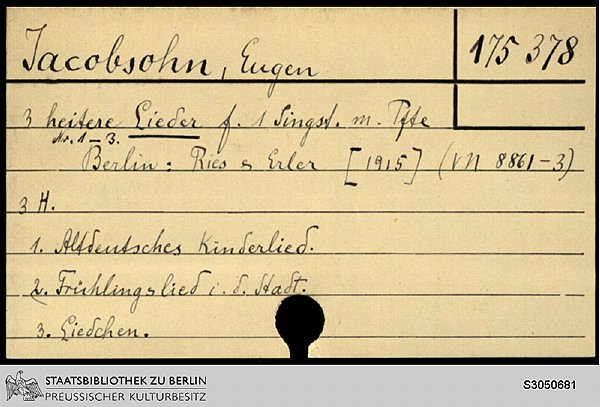 Jacobsohn, Eugen
175 378
3 heitere Lieder f. 1 Singst. m. Pfte
Nr. 1-3.
Berlin: Ries & Erler [1915] (VN 8861-3)
3 H.
1. Altdeutsches Kinderlied.
2. Frühlingslied i. d. Stadt.
3. Liedchen.
STAATSBIBLIOTHEK ZU BERLIN
PREUSSISCHER KULTURBESITZ
S3050681